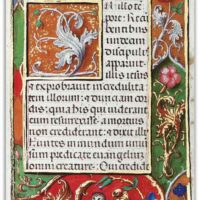 N illo té
pore: Recũ
bentibus
undecim
discipulis
apparuit
illis iesus
et exprobavit incredulita
tem illorum: et duriciam cor
dis: quia his qui viderant
eum resurrexisse: a mortuis
non crediderant. et dixit illis
Euntes in mundum univer
sum predicate evangelium
omni creature. Qui credide